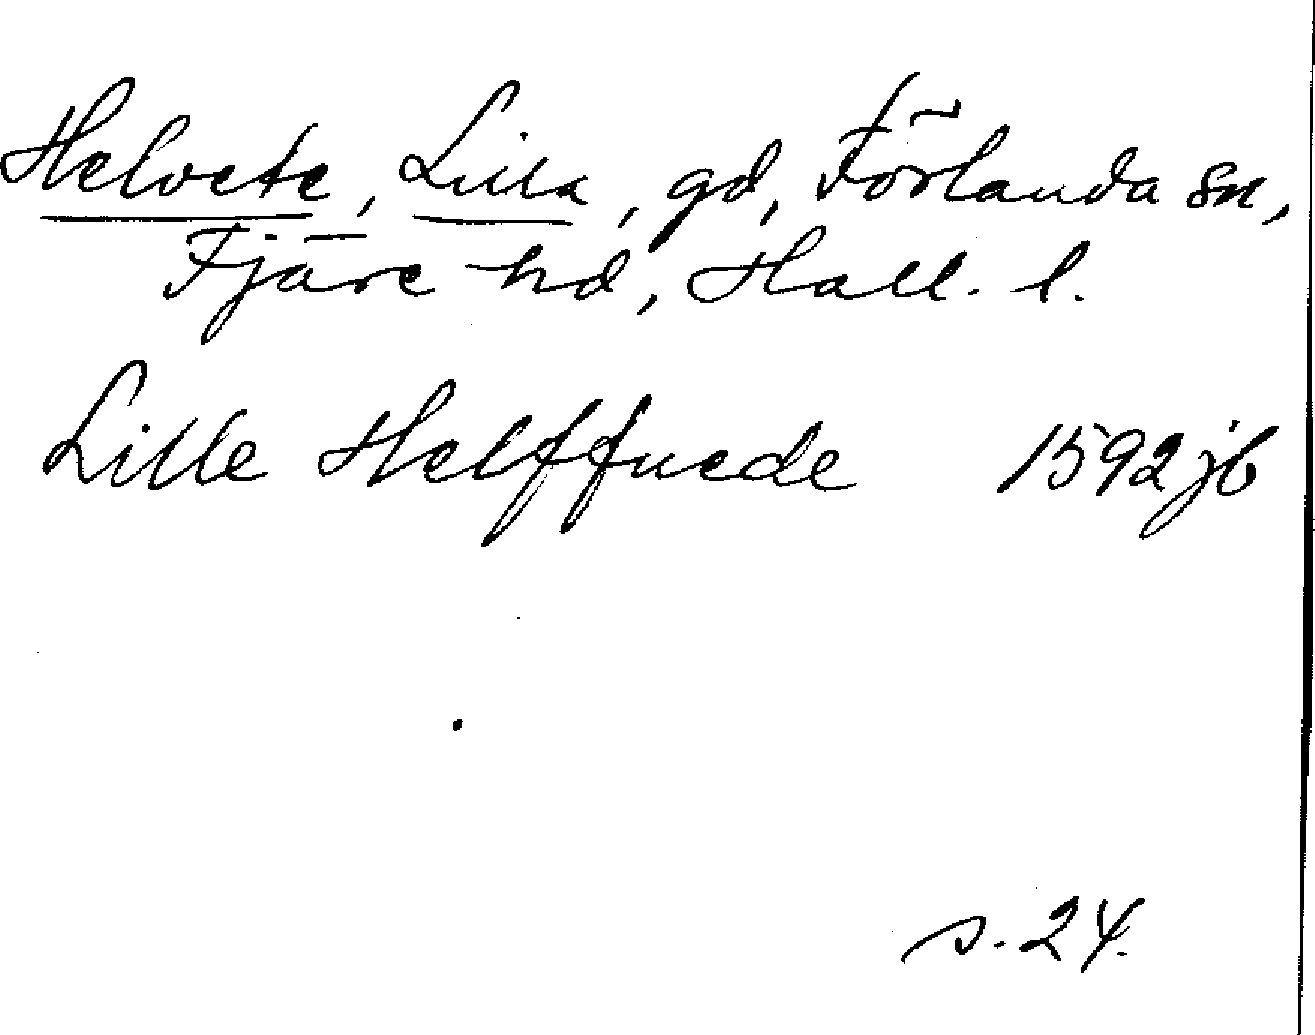 Helvete, Lilla, gd, Förlanda sn,
Fjäre hd, Hall. l.
Lille Helffuede 1592 jb
s. 24.